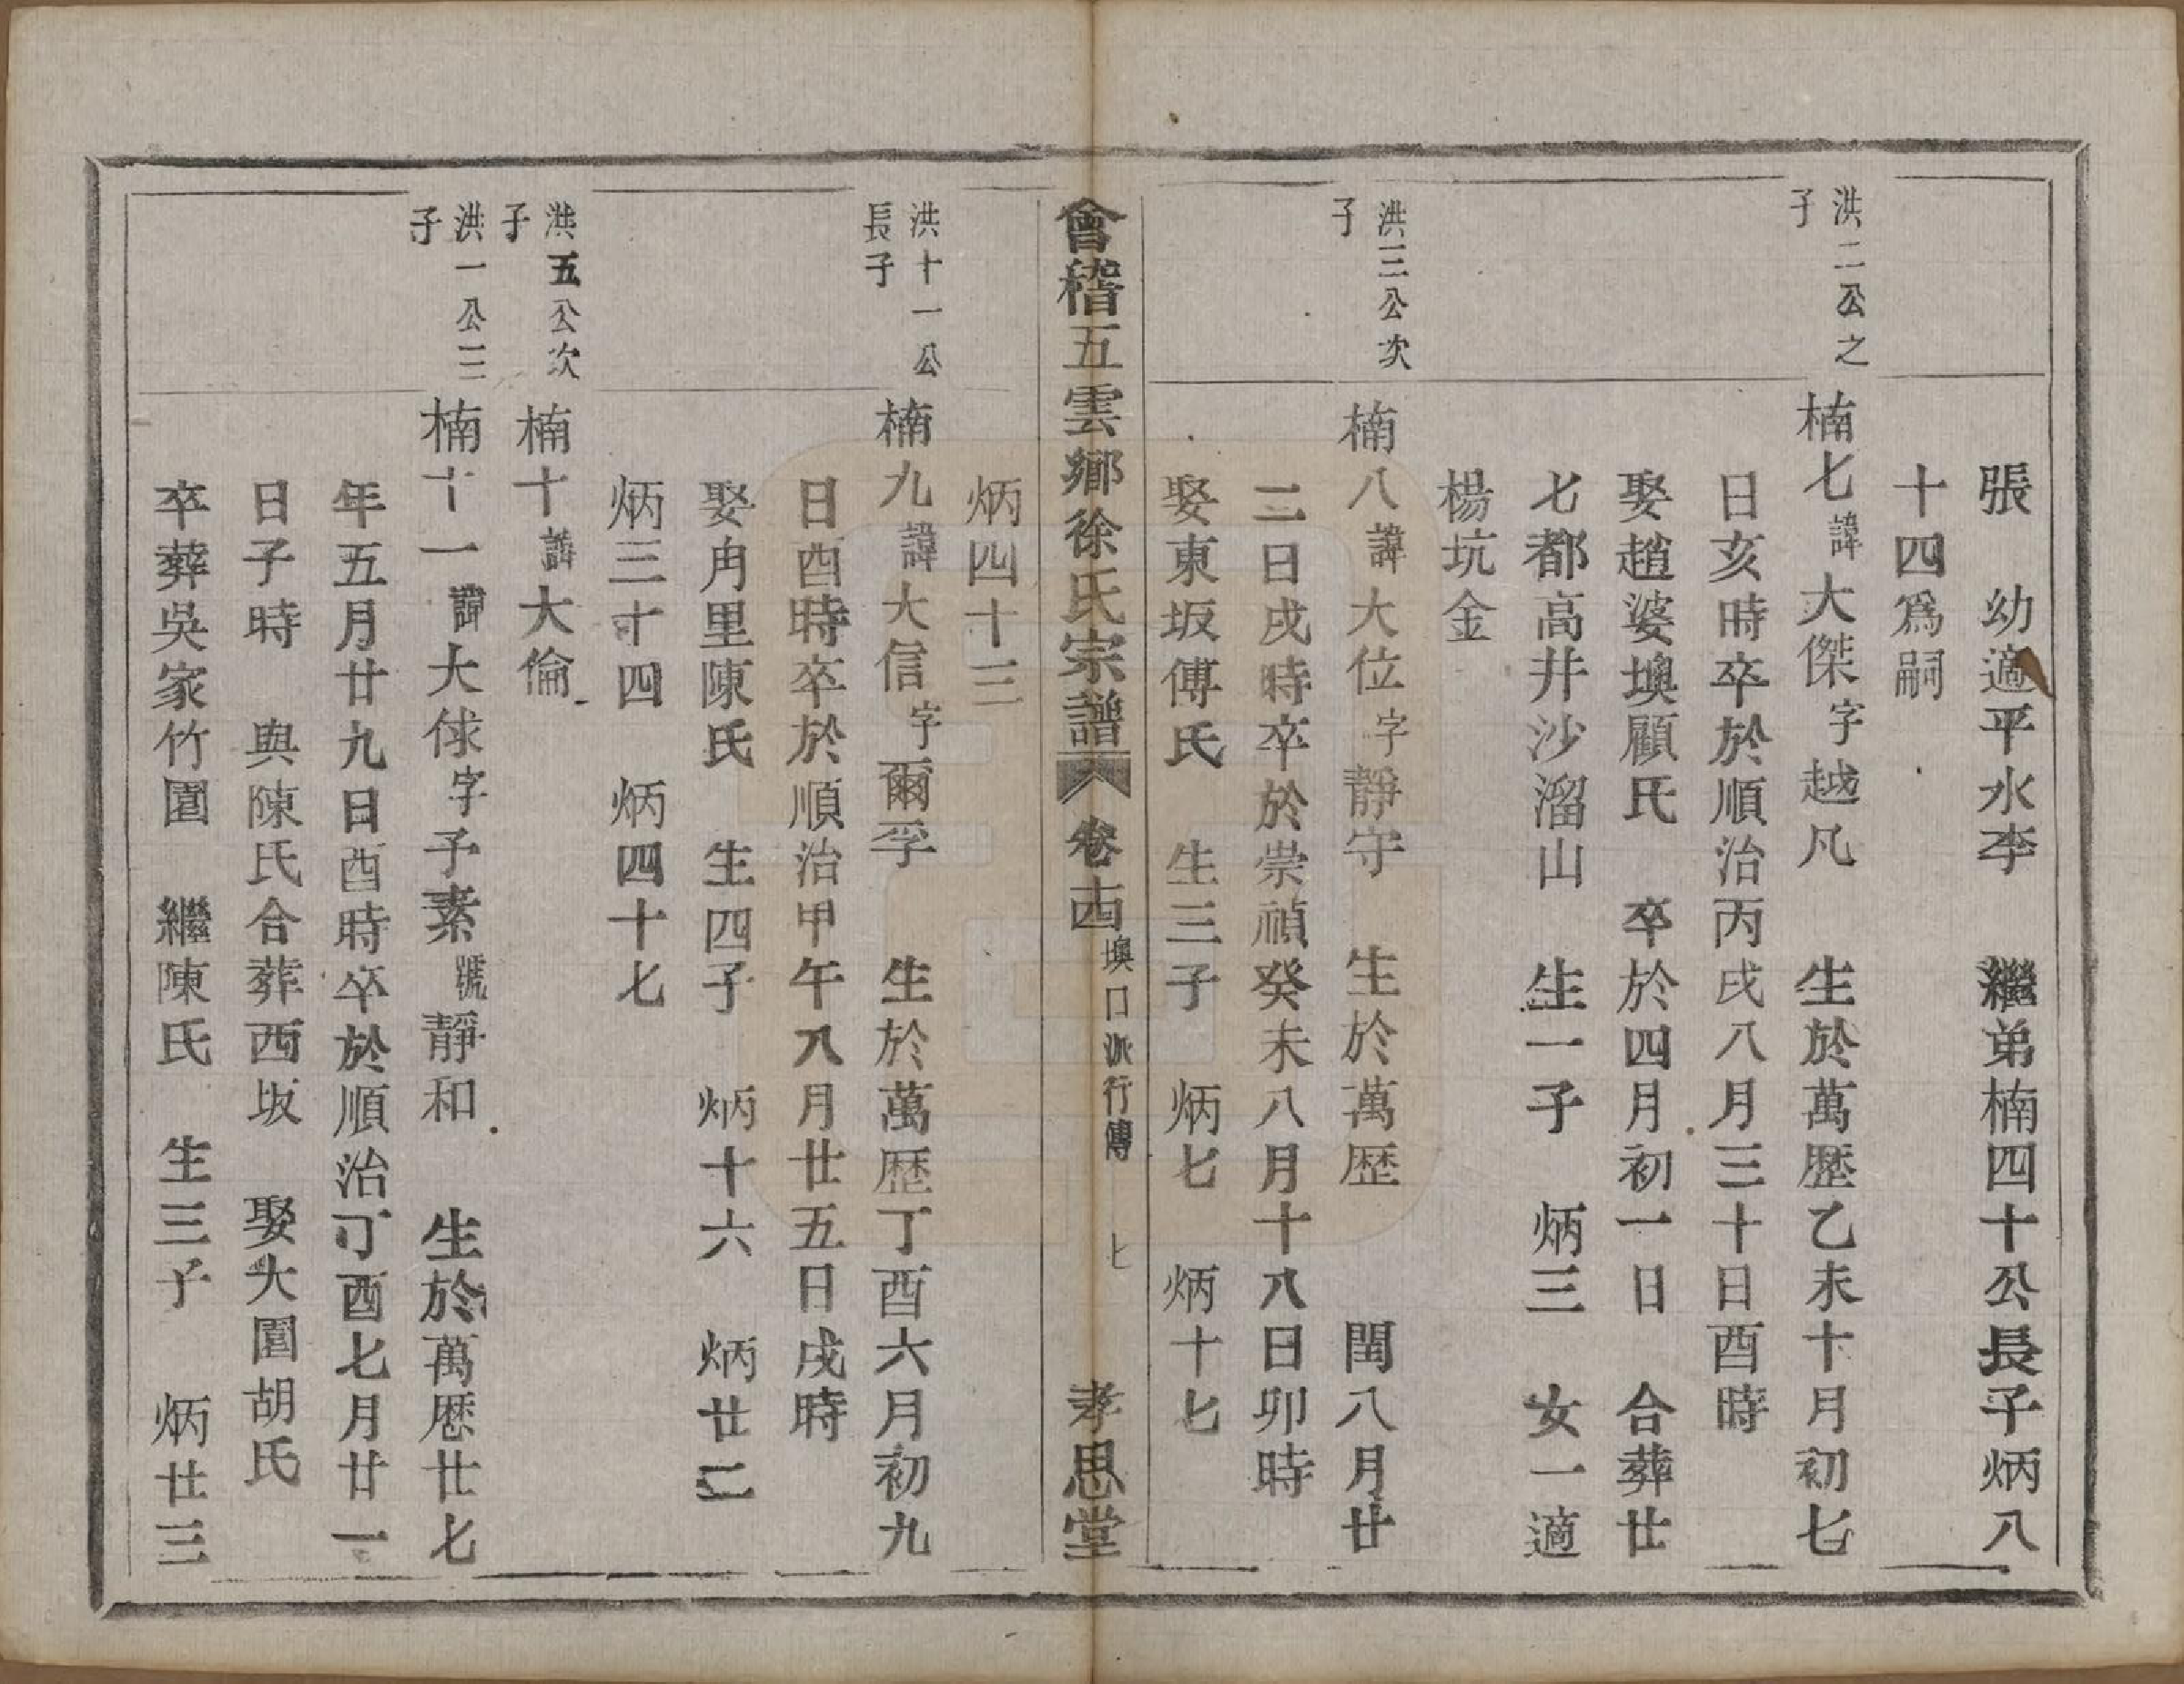 張　幼適平水李　繼弟楠四十公長子炳八
十四爲嗣
洪二公之
子
楠七諱大傑字越凡　生於萬歷乙未十月初七
日亥時卒於順治丙戌八月三十日酉時
娶趙婆墺顧氏　卒於四月初一日　合葬廿
七都高井沙溜山　生一子　炳三　女一適
楊坑金
洪三公次
子
楠八諱大位字靜守　生於萬歷　　閏八月廿
二日戌時卒於崇禎癸未八月十八日卯時
娶東坂傅氏　生三子　炳七　炳十七
會稽五雲鄉徐氏宗譜　卷十四　墺口派行傳　七　孝思堂
炳四十三
洪十一公
長子
楠九諱大信字爾孚　生於萬歷丁酉六月初九
日酉時卒於順治甲午八月廿五日戌時
娶冉里陳氏　生四子　炳十六　炳廿二
炳三十四　炳四十七
洪五公次
子
楠十諱大倫
洪一公三
子
楠十一諱大俅字予素號靜和　生於萬歷廿七
年五月廿九日酉時卒於順治丁酉七月廿一
日子時　與陳氏合葬西坂　娶大園胡氏
卒葬吳家竹園　繼陳氏　生三子　炳廿三